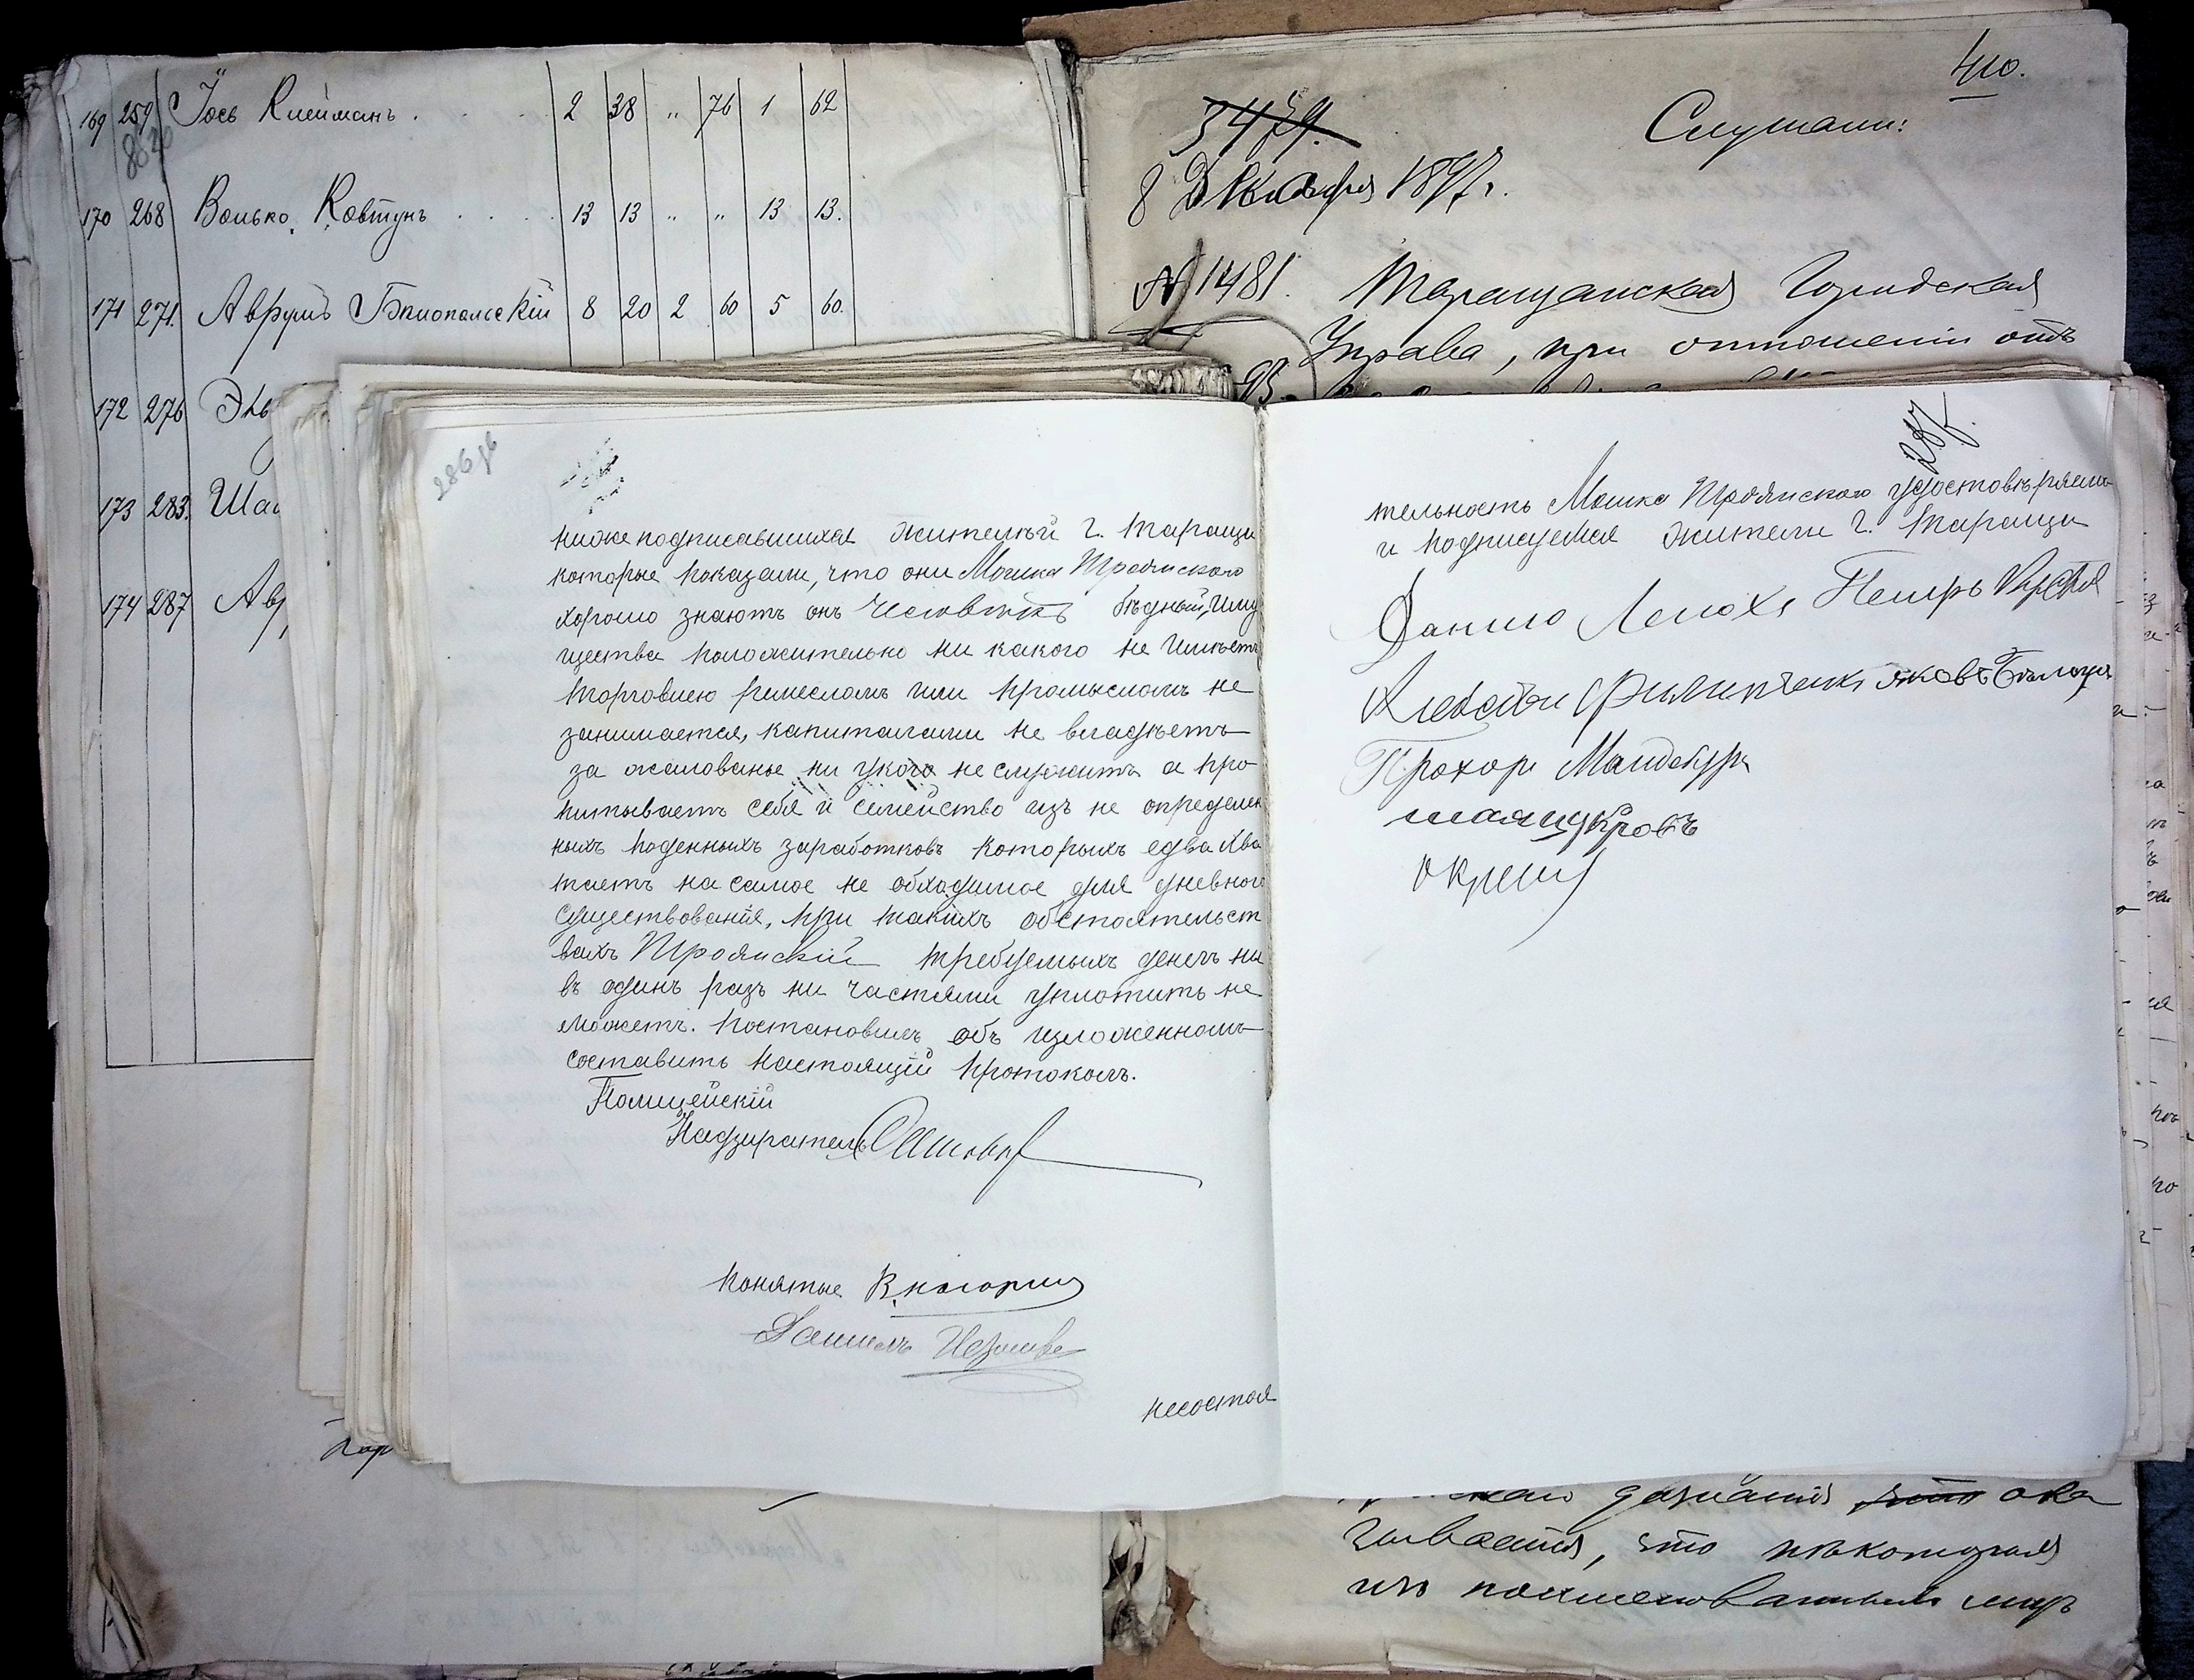 169 259 Іось Клейманъ . . . 2 38 " 76 1 62
170 268 Волько Ковтунъ . . . 13 13 " " 13 13.
171 271. Аврумъ Бялопольскій 8 20 2 60 5 60.
172 276
173 283.
174 287
410.
3479.
Слушали:
8 Декабря 1897 г.
№ 1481. Таращанская Городская
Управа, при отношеніи отъ
286 об
нижеподписавшихся жителей г. Таращи
которые показали, что они Мошка Троянского
хорошо знаютъ онъ человекъ бѣдный, иму
щества положительно ни какого не имѣетъ
торговлею ремесломъ или промысломъ не
занимается, капиталами не владѣетъ
за жалованье ни укого не служитъ а про
питываетъ себя и семейство изъ не определен
ныхъ поденныхъ заработковъ которыхъ едва хва
таетъ на самое не обходимое для дневного
существованія, при такихъ обстоятельст
вахъ Троянскій требуемыхъ денегъ ни
въ одинъ разъ ни частями уплатить не
можетъ. Постановилъ объ изложенномъ
составить настоящій протоколъ.
Полицейскій
Надзиратель
Понятые
Даниилъ
несостоя
287.
тельность Мошка Троянского удостовѣряемъ
и подписуемся жители г. Таращи
Данило Лелюхъ Петръ
Яковъ
Прохоръ
дознанія что ока
зывается, что нѣкоторыя
изъ поименованныхъ лицъ